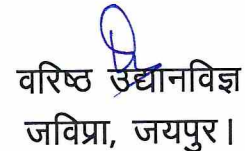 वरिष्ठ उद्यानविज्ञ
जविप्रा, जयपुर।